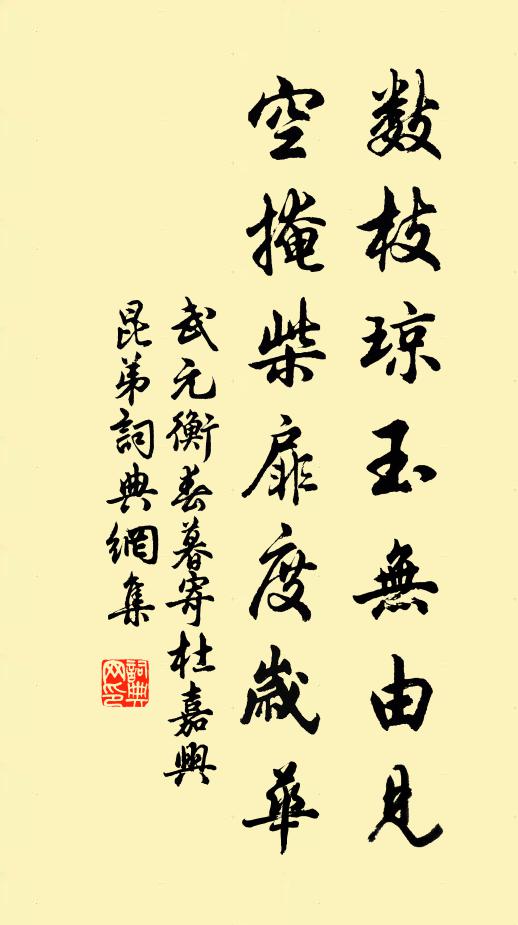 数枝琼玉無由見
空掩柴扉度歲華
武元衡春暮寄杜嘉興
昆弟詞典網集
詞典网印